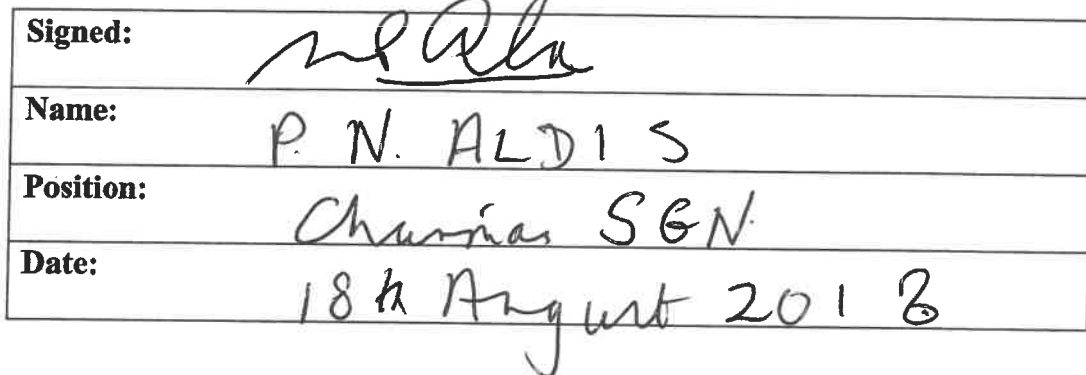 Signed:
Name: P. N. ALDIS
Position: Chairman SGN.
Date: 18th August 2013